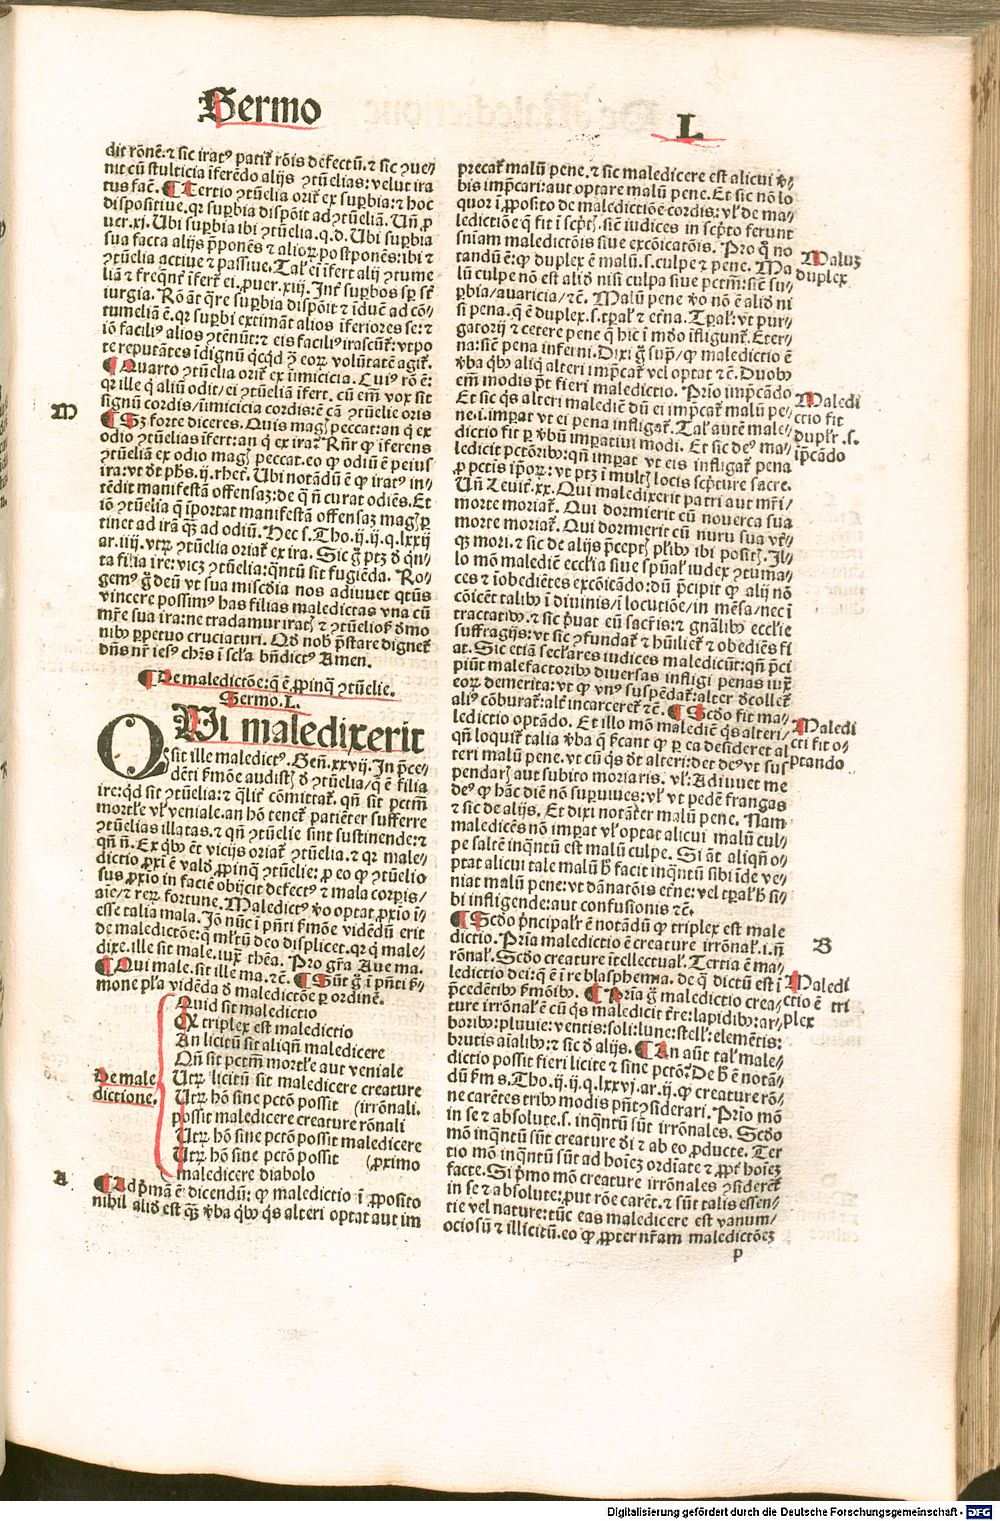 Sermo
L
dit rōnē. ⁊ sic irat⁹ patit᷑ rōis defectū. ⁊ sic ꝯue/
nit cū stulticia īferēdo alijs ꝯtūelias: velut ira
tus faē. ¶ Tertio ꝯtūelia orit᷑ ex suꝑbia: ⁊ hoc
dispositiue. qꝛ suꝑbia dispōit ad ꝯtūeliā. Uñ ꝓ
uer. xj. Ubi suꝑbia ibi ꝯtūelia. q. d. Ubi suꝑbia
sua facta alijs p̄ponēs ⁊ alioꝝ postponēs: ibi ē
ꝯtūelia actiue ⁊ passiue. Tal᷑ ei īfert alij ꝯtume
liā ⁊ freqn̄t īfert᷑ ei. ꝓuer. xiij. Int᷑ suꝑbos sꝑ st᷑
iurgia. Rō āt q̄re suꝑbia dispōit ⁊ iduē ad cō/
tumeliā ē. qꝛ suꝑbi extimāt alios īferiores se: ⁊
iō facili⁹ alios ꝯtēnūt: ⁊ eis facili⁹ irascūt᷑: vtpo
te reputātes īdignū qͥcqͥd ꝯ̄ eoꝝ volūtatē agit᷑.
¶ Quarto ꝯtūelia orit᷑ ex īimicicia. Cui⁹ rō ē:
qꝛ ille q̄ aliū odit/ ei ꝯtūeliā īfert. cū em̄ vox sit
signū cordis/ īimicicia cordis: ē cā ꝯtūelie oris
M
¶ Sꝫ forte diceres. Quis magꝭ peccat: an q̄ ex
odio ꝯtūelias īfert: an q̄ ex ira? Rn̄r ꝙ īferens
ꝯtūeliā ex odio magꝭ peccat. eo ꝙ odiū ē peius
ira: vt dt̄ ph̄s. ij. rhet᷑. Ubi notādū ē ꝙ irat⁹ in/
tēdit manifestā offensaꝫ: de q̄ n̄ curat odiēs. Et
iō ꝯtūelia q̄ īportat manifestā offensaꝫ magꝭ ꝑ
tinet ad irā qꝫ ad odiū. Hec s. Tho. ij. ij. q. lxxij
ar. iiij. vtꝝ ꝯtūelia oriat᷑ ex ira. Sic g̊ ptꝫ ð qͥn/
ta filia ire: vicꝫ ꝯtūelia: qͣntū sit fugiēda. Ro/
gem⁹ g̊ deū vt sua misc̄dia nos adiuuet qͣtus
vincere possim⁹ has filias maledictas vna cū
mr̄e sua ira: ne tradamur iratꝭ ⁊ ꝯtūeliosꝭ dēmo
nibꝰ ꝑpetuo cruciaturi. Qð nob̄ p̄stare dignet᷑
dn̄s nr̄ iesꝰ chr̄s ī scl̄a bn̄dictꝰ Amen.
¶ De maledictōe: q̄ ē ꝓpinq̄ ꝯtūelie.
Sermo. L.
QUi maledixerit
sit ille maledict⁹. Geñ. xxvij. In p̄ce/
dēti ẜmōe audistꝭ ð ꝯtūelia/ q̄ ē filia
ire: qͥd sit ꝯtūelia: ⁊ qͣlit᷑ cōmittat᷑. qn̄ sit pctm̄
mortl̄e vl᷑ veniale. an hō tenet᷑ patiēter sufferre
ꝯtūelias illatas. ⁊ qn̄ ꝯtūelie sint sustinende: ⁊
qn̄ n̄. Ex qͥbꝰ ēt vicijs oriat᷑ ꝯtūelia. ⁊ qꝛ male/
dictio ꝓxī ē valð ꝓpinq̄ ꝯtūelie: ꝓ eo ꝙ ꝯtūelio
sus ꝓxīo in faciē obijcit defectꝰ ⁊ mala corꝑis/
aīe/ ⁊ reꝝ fortune. Maledictꝰ v̄o optat ꝓxīo ī/
esse talia mala. Iō nūc ī p̄nti ẜmōe vidēdū erit
de maledictōe: q̄ ml̄tū deo displicet. qꝛ q̄ male/
dixe. ille sit male. iux᷑ thēa. Pro gr̄a Aue ma.
¶ Qui male. sit ille ma. ⁊c̄. ¶ Sūt g̊ ī p̄nti ẜ/
mone pl̄a vidēda ð maledictōe ꝑ ordinē.
De male
dictione.
Quid sit maledictio
Qͣ triplex est maledictio
An licitū sit aliqn̄ maledicere
Qn̄ sit pctm̄ mortl̄e aut veniale
Utꝝ licitū sit maledicere creature
Utꝝ hō sine pctō possit (irrōnali.
possit maledicere creature rōnali
Utꝝ hō sine pctō possit maledicere
Utꝝ hō sine pctō possit (ꝓximo
maledicere diabolo
A
¶ Ad p̄mā ē dicendū: ꝙ maledictio ī ꝓposito
nihil alið est qꝫ v̄ba qͥbꝰ qͥs alteri optat aut im
precat᷑ malū pene. ⁊ sic maledicere est alicui v̄/
bis imp̄cari: aut optare malū pene. Et sic nō lo
quor ī ꝓposito de maledictiōe cordis: vl᷑ de ma/
ledictiōe q̄ fit ī sc̄ptꝭ. sic̄ iudices in sc̄pto ferunt
sn̄iam maledictōis siue excōicatōis. Pro qͦ no
Maluꝫ
duplex
tandū ē: ꝙ duplex ē malū. s. culpe ⁊ pene. Ma
lū culpe nō est alið nisi culpa siue pctm̄: sic̄ su/
ꝑbia/ auaricia/ ⁊c̄. Malū pene v̄o nō ē alið ni
si pena. q̄ ē duplex. s. tꝑal᷑ ⁊ et̄na. Tꝑal᷑: vt pur/
gatorij ⁊ cetere pene q̄ hic ī mūdo īfligunt᷑. Eter/
na: sic̄ pena inferni. Dixi g̊ sup̄/ ꝙ maledictio ē
v̄ba qͥbꝰ aliqͥ alteri imp̄cat᷑ vel optat ⁊c̄. Duobꝰ
em̄ modis p̄t fieri maledictio. Prīo imp̄cādo
Maledi
ctio fit
duplr̄. s.
īp̄cādo
Et sic qͥs alteri maledic̄ dū ei imp̄cat᷑ malū pe/
ne. i. imꝑat vt ei pena infligat᷑. Tal᷑ autē male/
dictio fit ꝑ v̄bū imꝑatiui modi. Et sic deꝰ ma/
ledicit pctōribꝰ: qn̄ imꝑat vt eis infligat᷑ pena
ꝓ pctis ip̄oꝝ: vt ptꝫ ī multꝭ locis sc̄pture sacre.
Uñ Leuit᷑. xx. Qui maledixerit patri aut mr̄i/
morte moriat᷑. Qui dormierit cū nouerca sua
morte moriat᷑. Qui dormierit cū nuru sua vtr̄/
qꝫ mori. ⁊ sic de alijs p̄ceptꝭ pl̄ibꝰ ibi positꝭ. Il/
lo mōn maledic̄ ecclīa siue sp̄ual᷑ iudex ꝯtuma/
ces ⁊ īobediētes excōicādo: dū p̄cipit ꝙ alij nō
cōicēt talibꝰ ī diuinis/ ī locutiōe/ in mēsa/ nec ī
tractatibꝰ. ⁊ sic p̄uat eū sacr̄is: ⁊ gn̄alibꝰ ecclīe
suffragijs: vt sic ꝯfundat᷑ ⁊ hūiliet᷑ ⁊ obediēs fi
at. Sic etiā sec̄lares iudices maledicūt: qn̄ p̄ci
piūt malefactoribꝰ diuersas infligi penas iux᷑
eoꝝ demerita: vt ꝙ vnꝰ suspēdat᷑: alter ðcollet᷑
aliꝰ cōburat᷑: alt᷑ incarceret᷑ ⁊c̄. ¶ Scðo fit ma/
Maledi
cti fit o/
ptando
ledictio optādo. Et illo mō maledic̄ qͥs alteri/
qn̄ loquit᷑ talia v̄ba q̄ ẜcant ꝙ ꝑ ea desideret al
teri malū pene. vt cū qͥs dt̄ alteri: det deꝰ vt sus
pendarꝭ aut subito moriaris. vl᷑: Adiuuet me
deꝰ ꝙ hāc diē nō suꝑuiues: vl᷑ vt pedē frangas
⁊ sic de alijs. Et dixi notāter malū pene. Nam
maledicēs nō imꝑat vl᷑ optat alicui malū cul/
pe saltē inqͣntū est malū culpe. Si āt aliqn̄ o/
ptat alicui tale malū h̄ facit inqͣntū sibi īde ve/
niat malū pene: vt dānatōis et̄ne: vel tꝑal᷑ h̄ si/
bi infligende: aut confusionis ⁊c̄.
B
¶ Scðo p̄ncipalr̄ ē notādū ꝙ triplex est male
dictio. Prīa maledictio ē creature irrōnal᷑. i. n̄
rōnal᷑. Scðo creature ītellectual᷑. Tertia ē ma/
Maledi
ctio ē tri
plex
ledictio dei: q̄ ē ire blasphemia. de q̄ dictū est ī
p̄cedētibꝰ ẜmōibꝰ. ¶ Prīa g̊ maledictio crea/
ture irrōnal᷑ ē cū qͥs maledicit t̄re: lapidibꝰ: ar/
boribꝰ: pluuie: ventis: soli: lune: stell᷑: elemētis:
brutis aīalibꝰ: ⁊ sic ð alijs. ¶ An aūt tal᷑ male/
dictio possit fieri licite ⁊ sine pctō? De h̄ ē notā/
dū ẜm s. Tho. ij. ij. q. lxxvj. ar. ij. ꝙ creature rō/
ne carētes tribꝰ modis pn̄t ꝯsiderari. Prīo mō
in se ⁊ absolute. s. inqͣntū sūt irrōnales. Scðo
mō inqͣntū sūt creature ði ⁊ ab eo ꝓducte. Ter
tio mō inqͣntū sūt ad hoīeꝫ ordīate ⁊ ꝓpt᷑ hoīeꝫ
facte. Si p̄mo mō creature irrōnales ꝯsiderēt᷑
in se ⁊ absolute: ꝓut rōe carēt. ⁊ sūt talis essen/
tie vel nature: tūc eas maledicere est vanum/
ociosū ⁊ illicitū. eo ꝙ ꝓpter nr̄am maledictōeꝫ
p
Digitalisierung gefördert durch die Deutsche Forschungsgemeinschaft - DFG